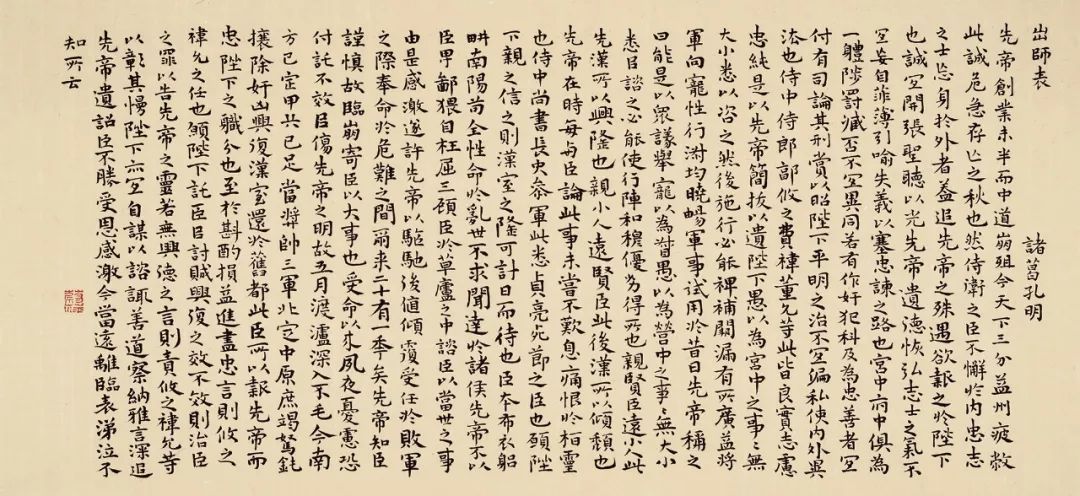 出師表 諸葛孔明
先帝創業未半而中道崩殂今天下三分益州疲敝
此誠危急存亡之秋也然侍衛之臣不懈於內忠志
之士忘身於外者蓋追先帝之殊遇欲報之於陛下
也誠宜開張聖聽以光先帝遺德恢弘志士之氣不
宜妄自菲薄引喻失義以塞忠諫之路也宮中府中俱為
一體陟罰臧否不宜異同若有作奸犯科及為忠善者宜
付有司論其刑賞以昭陛下平明之治不宜偏私使內外異
法也侍中侍郎郭攸之費禕董允等此皆良實志慮
忠純是以先帝簡拔以遺陛下愚以為宮中之事〻無
大小悉以咨之然後施行必能裨補闕漏有所廣益將
軍向寵性行淑均曉暢軍事試用於昔日先帝稱之
曰能是以眾議舉寵以為督愚以為營中之事〻無大小
悉以諮之必能使行陣和穆優劣得所也親賢臣遠小人此
先漢所以興隆也親小人遠賢臣此後漢所以傾頹也
先帝在時每與臣論此事未嘗不歎息痛恨於桓靈
也侍中尚書長史參軍此悉貞亮死節之臣也願陛
下親之信之則漢室之隆可計日而待也臣本布衣躬
耕南陽苟全性命於亂世不求聞達於諸侯先帝不以
臣卑鄙猥自枉屈三顧臣於草廬之中諮臣以當世之事
由是感激遂許先帝以驅馳後值傾覆受任於敗軍
之際奉命於危難之間爾來二十有一年矣先帝知臣
謹慎故臨崩寄臣以大事也受命以來夙夜憂慮恐
付託不效以傷先帝之明故五月渡瀘深入不毛今南
方已定甲兵已足當獎帥三軍北定中原庶竭駑鈍
攘除奸凶興復漢室還於舊都此臣所以報先帝而
忠陛下之職分也至於斟酌損益進盡忠言則攸之
禕允之任也願陛下託臣以討賊興復之效不效則治臣
之罪以告先帝之靈若無興德之言則責攸之禕允等
以彰其慢陛下亦宜自謀以諮諏善道察納雅言深追
先帝遺詔臣不勝受恩感激今當遠離臨表涕泣不
知所云